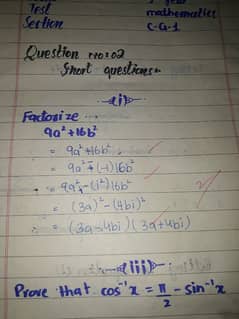 Test
mathematics
Section
C-G-1
Question no:02
Short questions:-
(i)
Factorize
9a²+16b²
= 9a²+16b²
= 9a²-(-1)16b²
= 9a²-(i²)16b²
= (3a)²-(4bi)²
= (3a-4bi)(3a+4bi)
(iii)
Prove that cos⁻¹x = π/2 - sin⁻¹x